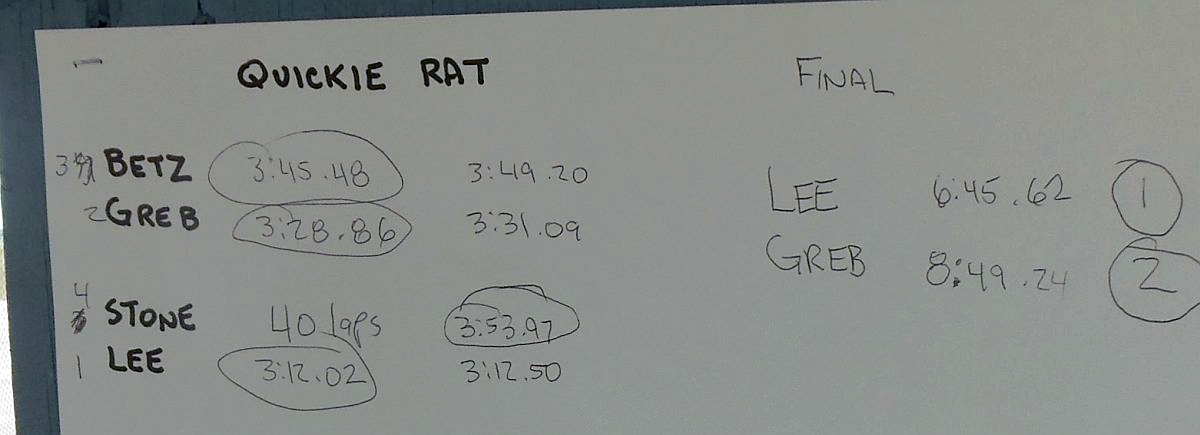 QUICKIE RAT
FINAL
3 BETZ 3:45.48 3:49.20
2 GREB 3:28.86 3:31.09
4
STONE 40 laps 3:53.97
1 LEE 3:12.02 3:12.50
LEE 6:45.62 1
GREB 8:49.24 2